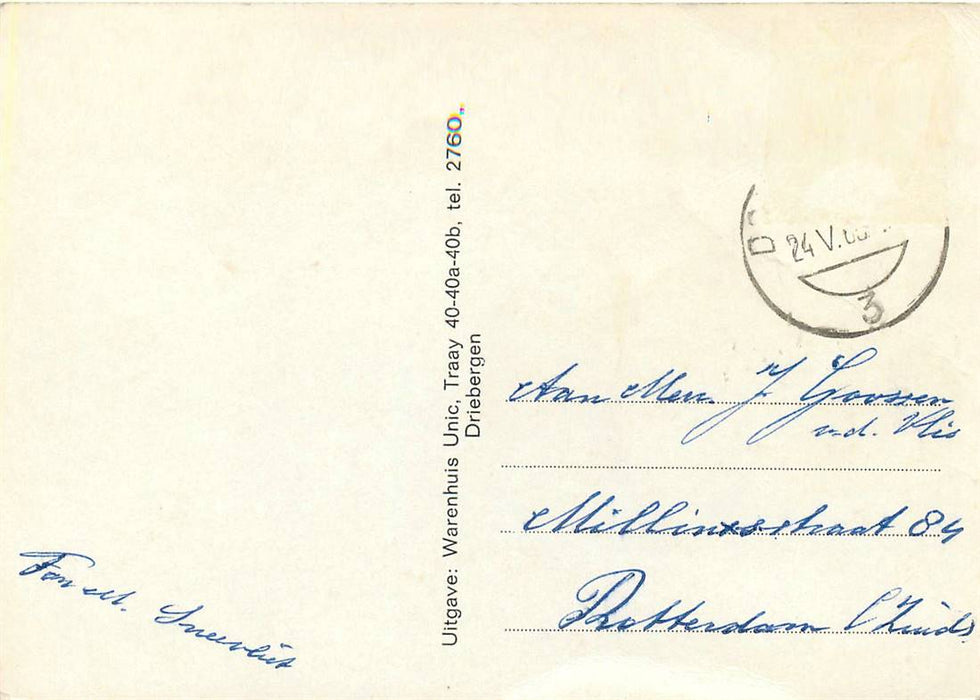 Uitgave: Warenhuis Unic, Traay 40-40a-40b, tel. 2760.
Driebergen
D
24 V.
3
Aan Mevr. J Goossen
v.d. Vlis
Millinxstraat 84
Rotterdam (Zuid)
Fam. Sneevliet